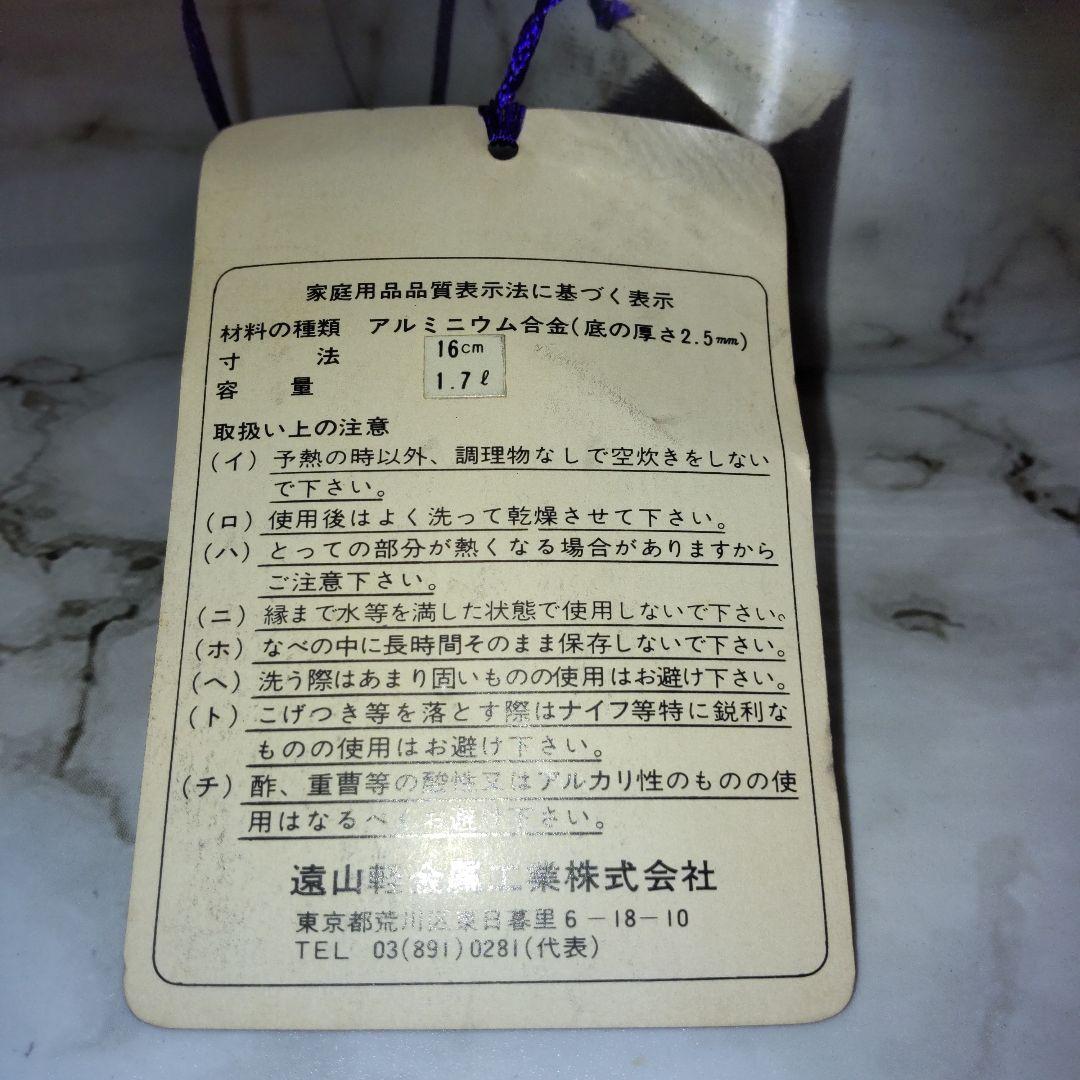 家庭用品品質表示法に基づく表示
材料の種類 アルミニウム合金(底の厚さ2.5mm)
寸法 16cm
容量 1.7ℓ
取扱い上の注意
(イ) 予熱の時以外、調理物なしで空炊きをしない
で下さい。
(ロ) 使用後はよく洗って乾燥させて下さい。
(ハ) とっての部分が熱くなる場合がありますから
ご注意下さい。
(ニ) 縁まで水等を満した状態で使用しないで下さい。
(ホ) なべの中に長時間そのまま保存しないで下さい。
(ヘ) 洗う際はあまり固いものの使用はお避け下さい。
(ト) こげつき等を落とす際はナイフ等特に鋭利な
ものの使用はお避け下さい。
(チ) 酢、重曹等の酸性又はアルカリ性のものの使
用はなるべくお避け下さい。
遠山軽金属工業株式会社
東京都荒川区東日暮里6-18-10
TEL 03(891)0281(代表)